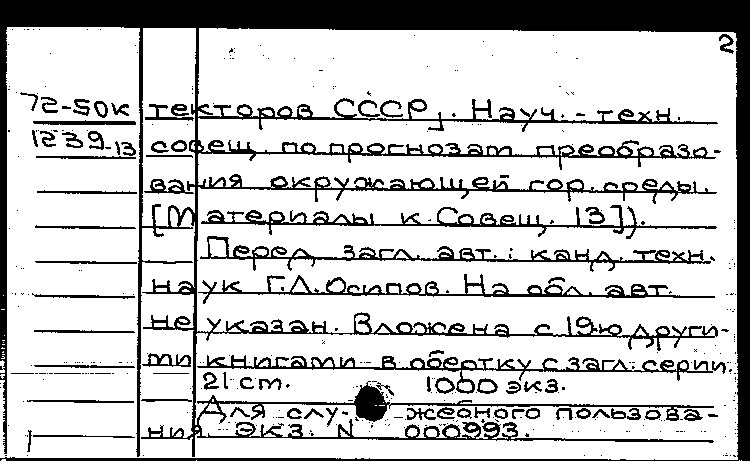 2
72-50к текторов СССР]. Науч.-техн.
1239-13 совещ. по прогнозам преобразо-
вания окружающей гор. среды.
[Материалы к Совещ. 13]).
Перед загл. авт.: канд. техн.
наук Г.Л.Осипов. На обл. авт.
не указан. Вложена с 19-ю други-
ми книгами в обертку с загл. серии.
21 cm. 1000 экз.
Для слу- жебного пользова-
ния. Экз. N 000993.